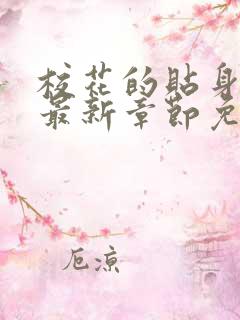 校花的贴身
最新章节免
厄凉